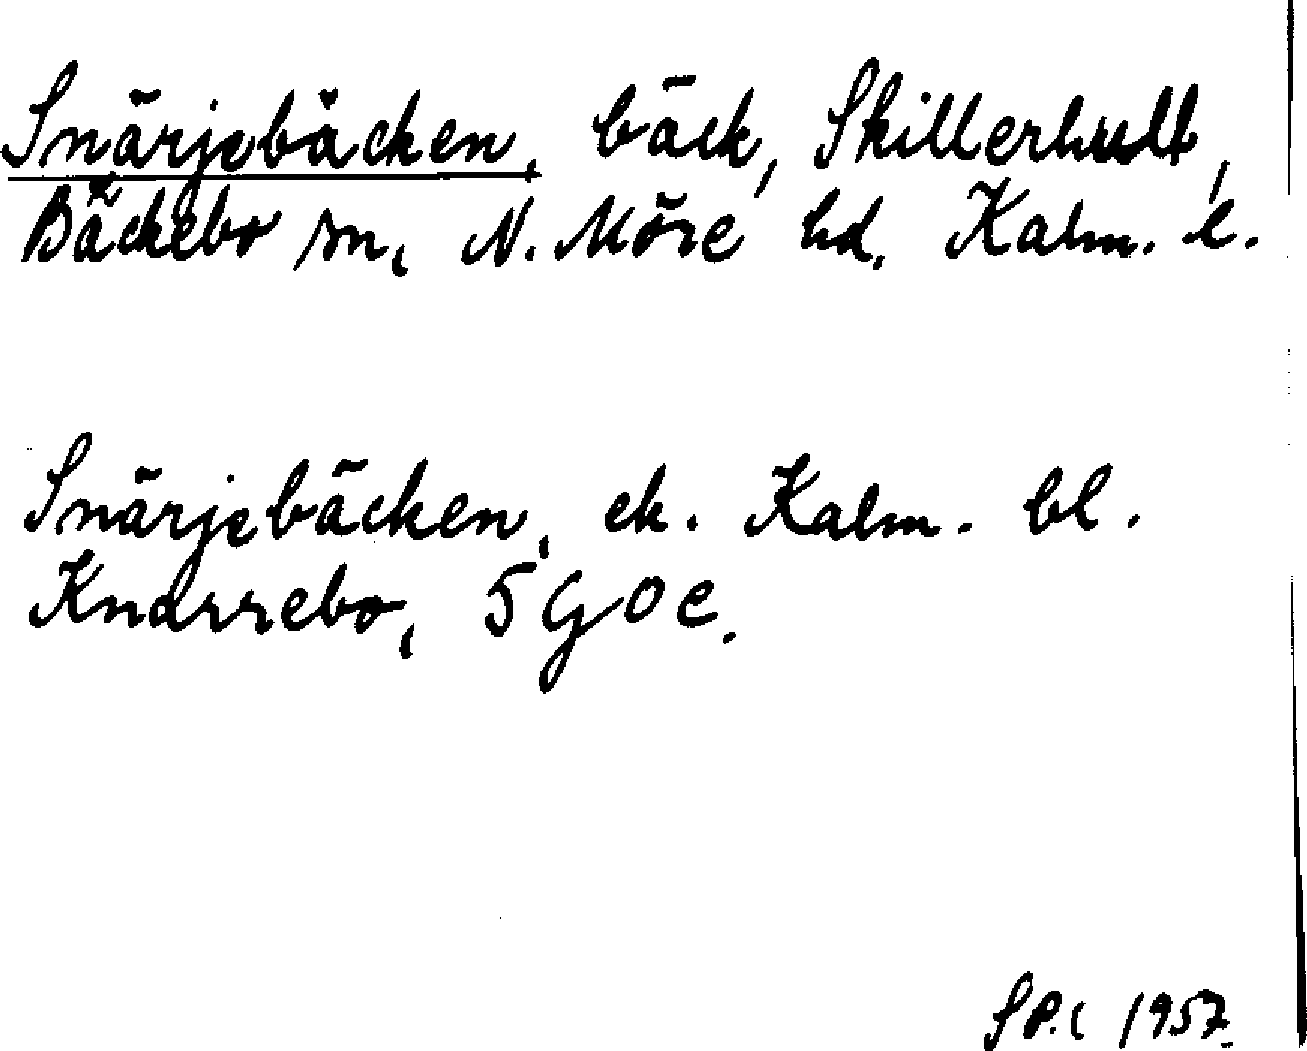 Snärjebäcken, bäck, Skillerhult,
Bäckebo sn, N. Möre hd. Kalm. l.
Snärjebäcken, ek. Kalm. bl.
Knarrebo, 5 G O e.
1957